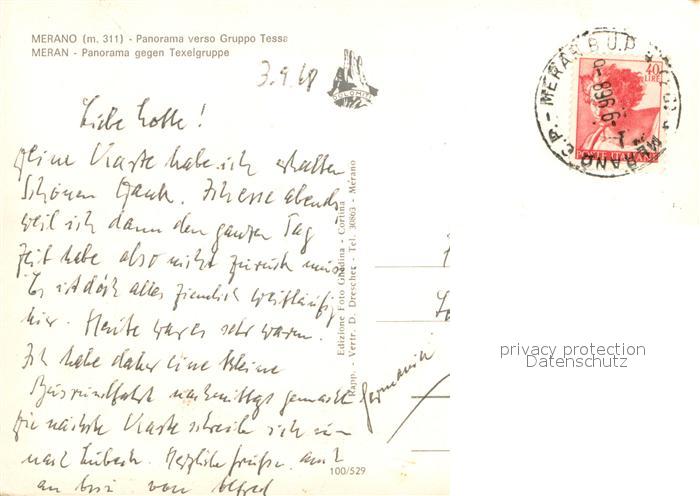 MERANO (m. 311) - Panorama verso Gruppo Tessa
MERAN - Panorama gegen Texelgruppe
3.9.68
DOLOMITI
MERANO C.P. - MERAN B.U.P.
40
LIRE
POSTE ITALIANE
Liebe Lotte!
Deine Karte habe ich erhalten
Schönen Dank. Ich esse abends
weil ich dann den ganzen Tag
Zeit habe also nicht zurück muss
Es ist doch alles ziemlich weitläufig
hier. Heute war es sehr warm.
Ich habe daher eine kleine
Busrundfahrt nachmittags gemacht
Die nächste Karte schreibe ich
nach Lübeck. Herzliche Grüsse auch
an von Alfred
Germania
Edizione Foto Ghedina - Cortina
Rapp. - Vertr. D. Drescher - Tel. 30863 - Merano
100/529
privacy protection
Datenschutz